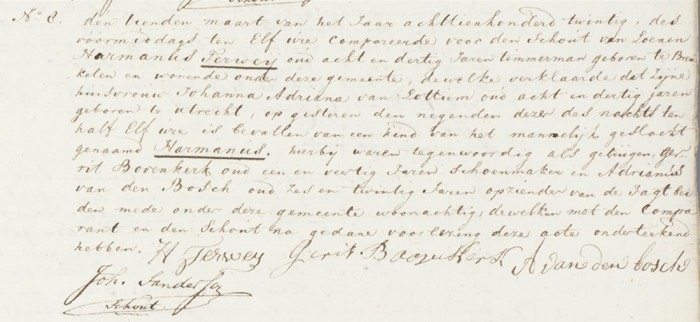 Schout
No 8. den tienden maart van het Jaar achttienhonderd twintig, des
voormiddags ten Elf ure Compareerde voor den Schout van Loenen
Harmanus Terwey oud acht en dertig Jaren timmerman geboren te Breu
kelen en wonende onder deze gemeente, dewelke verklaarde dat zijne
huisvrouw Johanna Adriana van Lottum oud acht en dertig jaren
geboren te Utrecht, op gisteren den negenden dezer des nachts ten
half Elf ure is bevallen van een kind van het mannelijk geslacht
genaamd Harmanus. hierbij waren tegenwoordig als getuigen, Ger
rit Bovenkerk oud een en veertig Jaren Schoenmaker en Adrianus
van den Bosch oud zes en twintig Jaren opziender van de Jagt bei
den mede onder deze gemeente woonachtig; dewelken met den Compa
rant en den Schout na gedane voorlezing deze acte onderteekend
hebben. H Terwey Gerit Bovenkerk A van den bosch
Joh. Sanderson
Schout